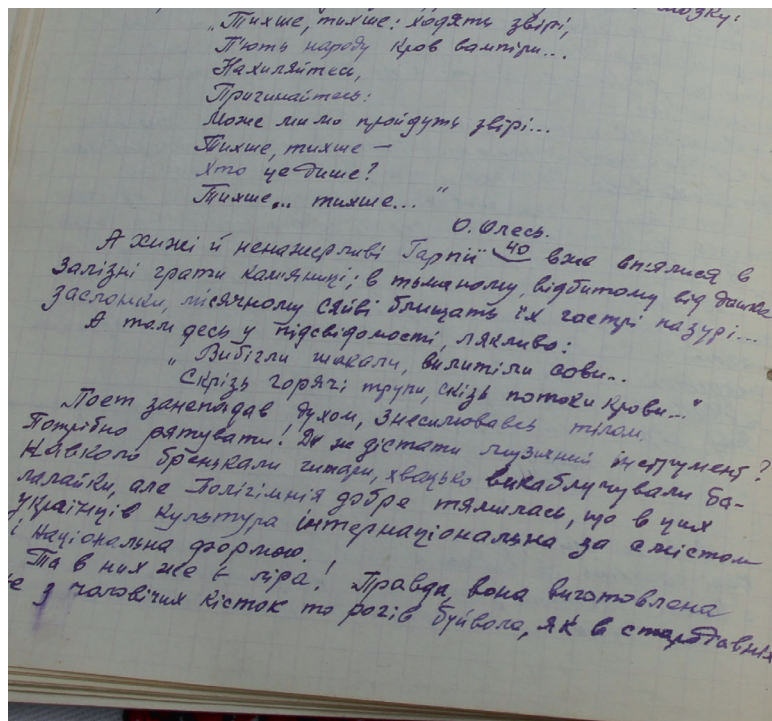 мозку:
„Тихше, тихше: ходять звірі,
П'ють народу кров вампіри...
Нахиляйтесь,
Пригинайтесь:
Може мимо пройдуть звірі...
Тихше, тихше —
Хто це дише?
Тихше... тихше..."
О. Олесь.
А хижі й ненажерливі Гарпії 40 вже вп'ялися в
залізні грати кам'яниці; в тьманому, відбитому від дашка
заслонки, місячному сяйві блищать їх гострі пазурі...
А там десь у підсвідомості, лякливо:
„Вибігли шакали, вилитіли сови..
Скрізь горячі трупи, скізь потоки крови..."
Поет занепадав духом, знесилювавсь тілом.
Потрібно рятувати! Де ж дістати музичний інструмент?
Навколо бренькали гитари, хвацько викаблучували ба-
лалайки, але Полігімнія добре тямилась, що в цих
українців культура інтернаціональна за змістом
і національна формою.
Та в них же є ліра! Правда, вона виготовлена
не з чоловічих кісток то рогів буйвола, як в стародавніх